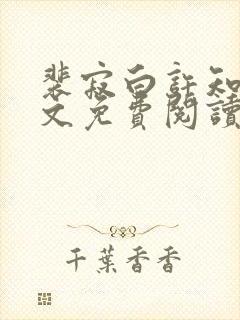 裴寂白許知
文免費閱讀
千葉香香